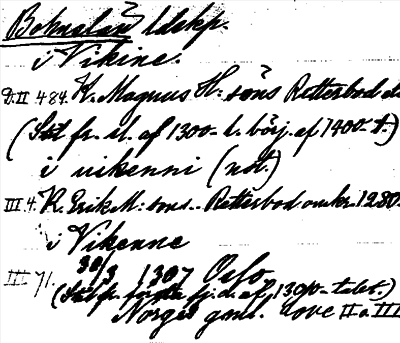 Bohuslän ldskp.
i Vikine.
D. II 484. K. Magnus H: söns Retterbod
(Skt fr. sl. af 1300- l. börj. af 1400-t.)
i uikenni (not.)
III 4. K. Erik M: sons Retterbod omkr. 1280
i Vikenne
III 71. 30/3 1307 Oslo
(Skt fr. första fj.d. af 1300-talet.)
Norges gaml. Love II o. III